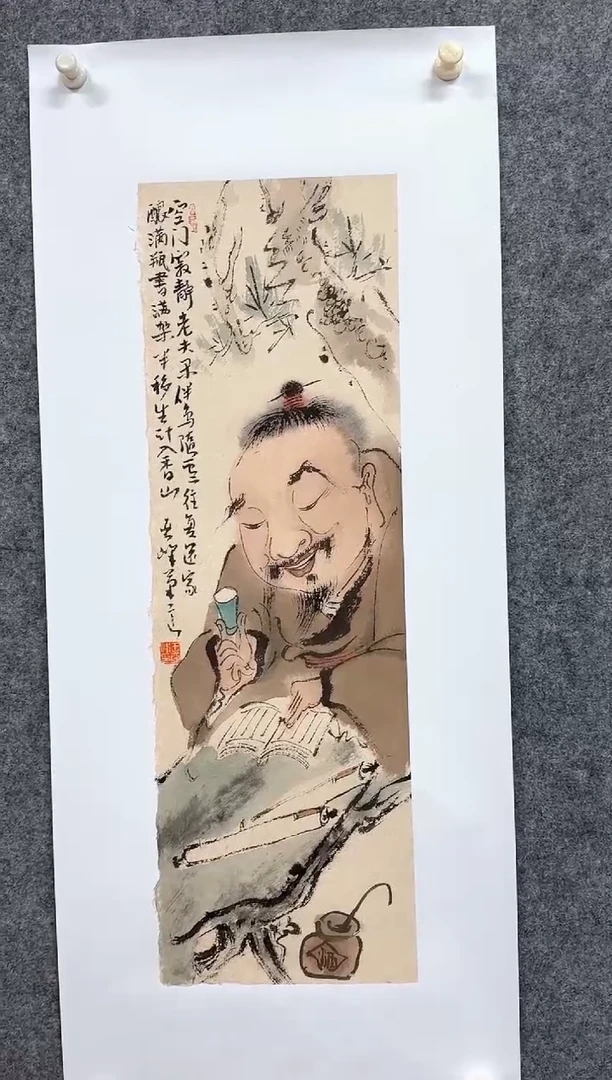 空门寂静老夫闲伴鸟随云往复还家
酿满瓶書满架半移生计入香山
酒